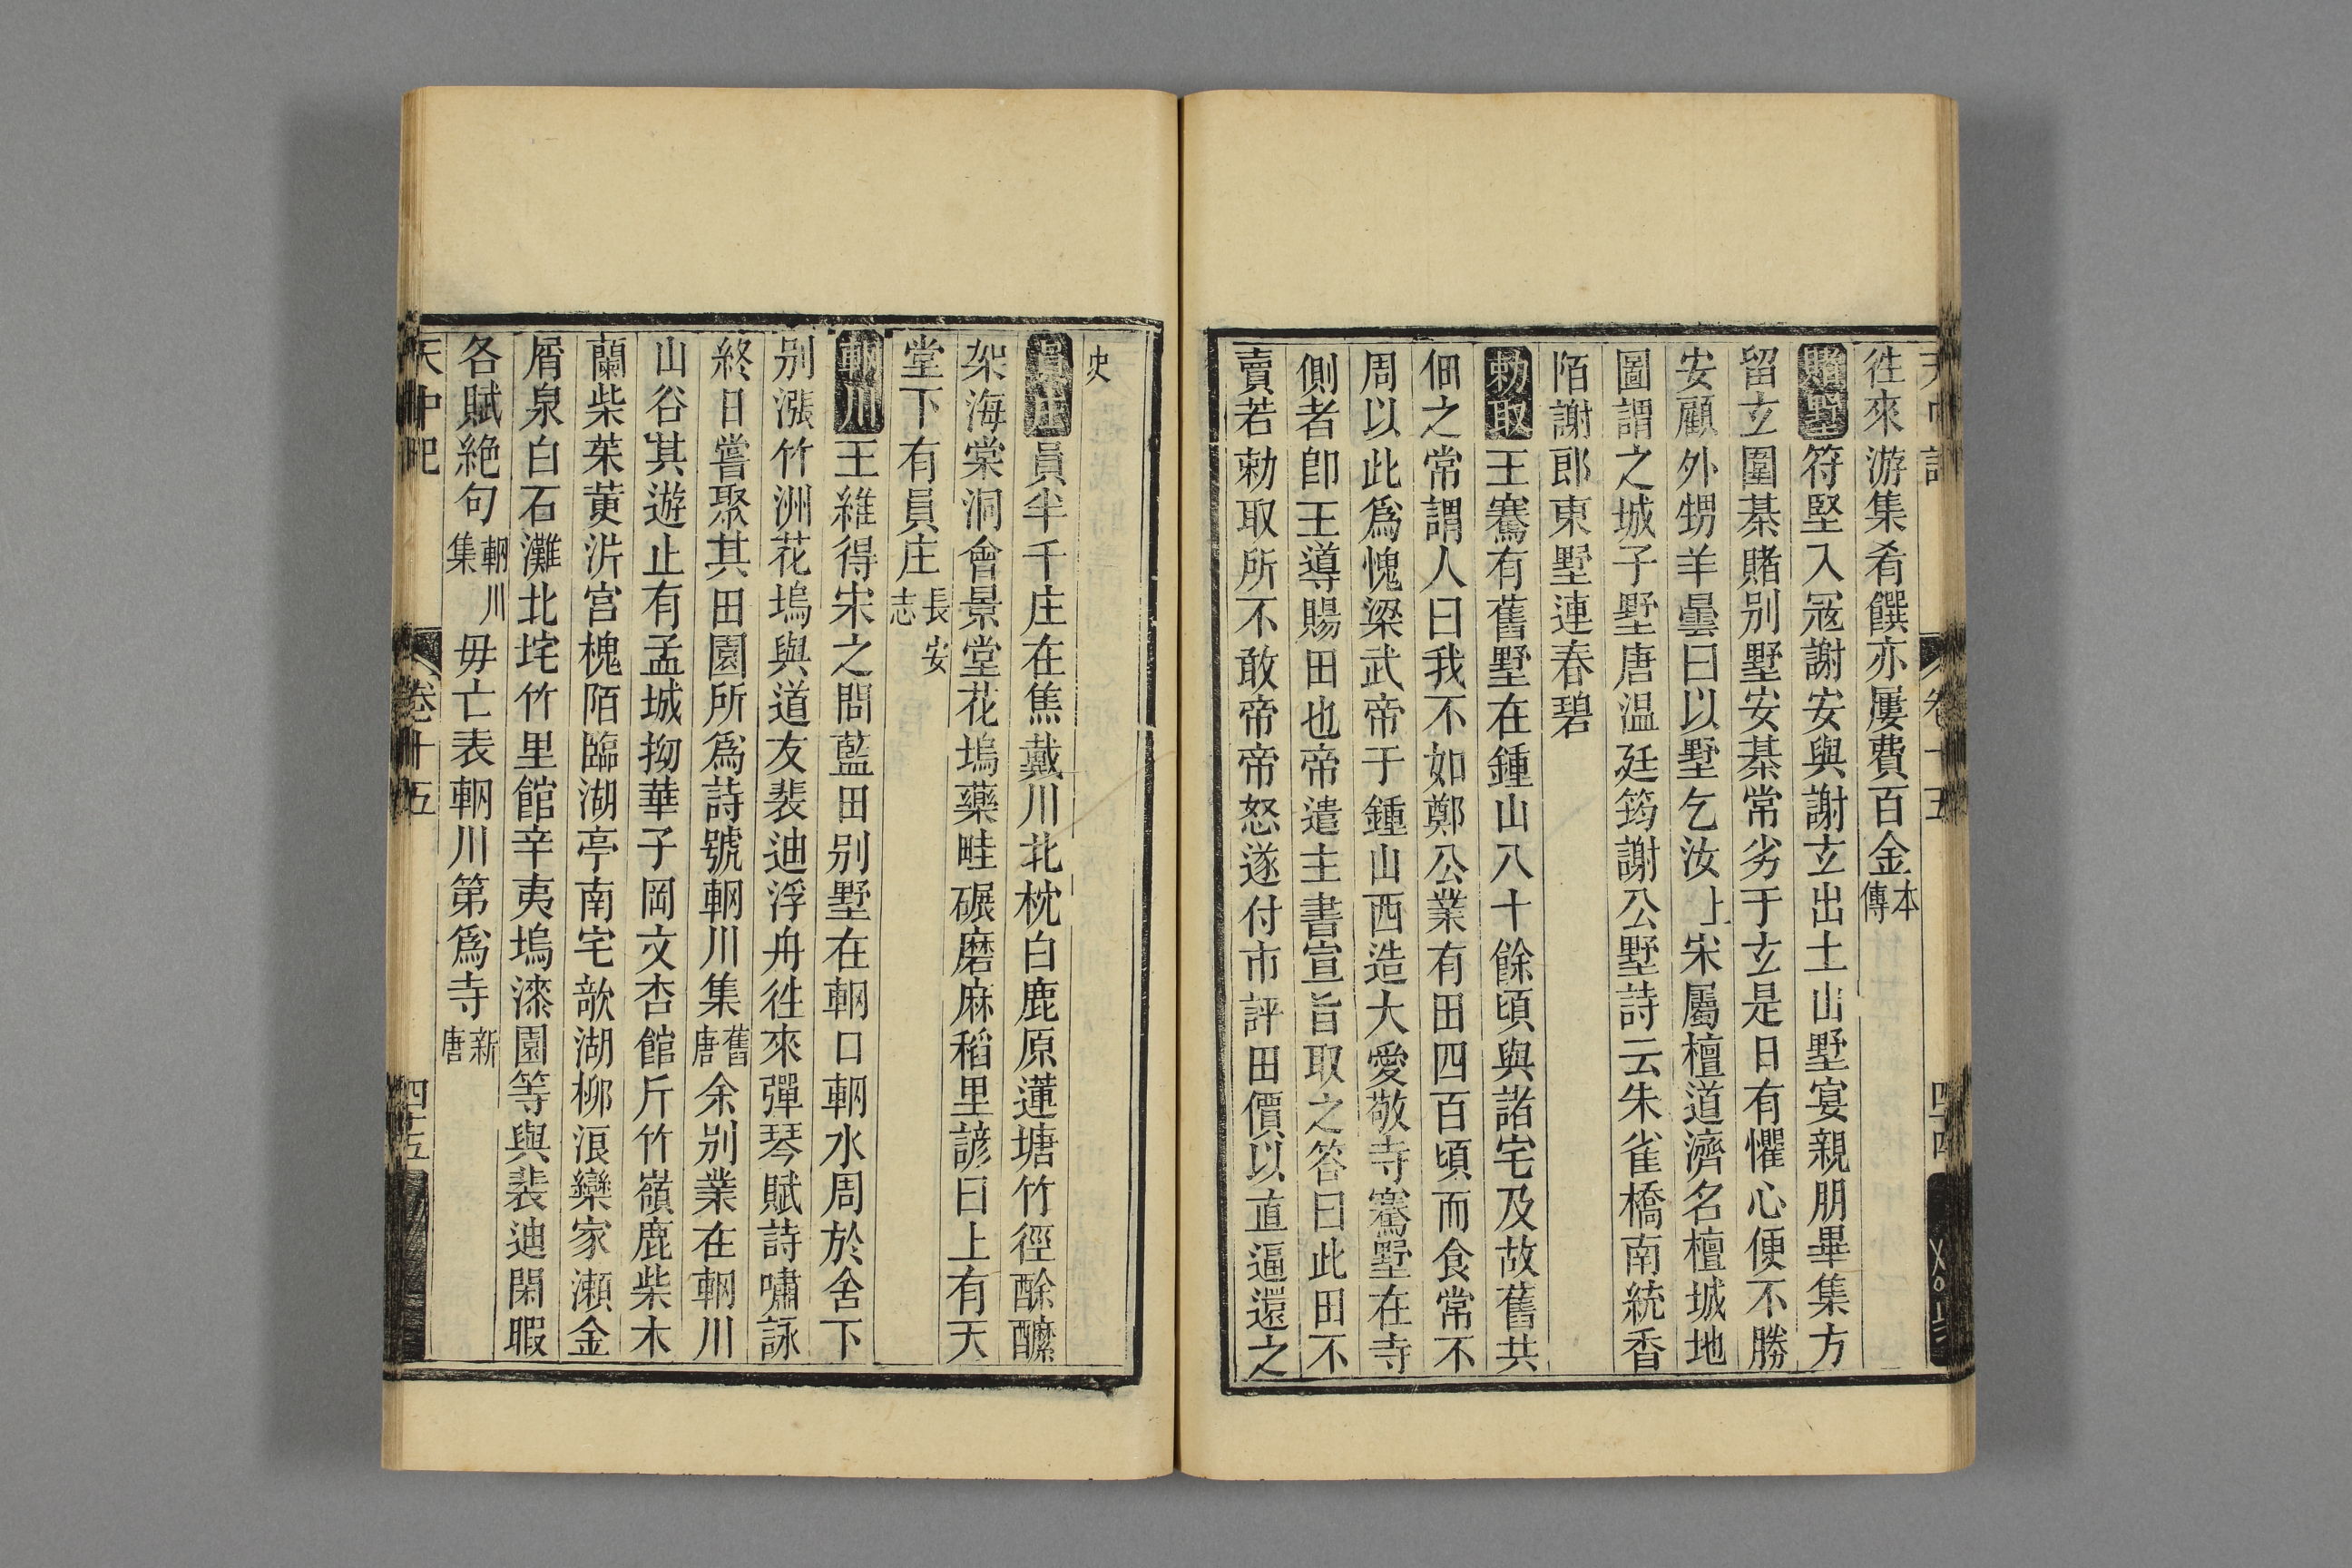 徃來游集肴饌亦屢費百金本傳
賭墅符堅入冦謝安與謝玄出土山墅宴親朋畢集方
留玄圍棊賭别墅安棊常劣于玄是日有懼心便不勝
安顧外甥羊曇曰以墅乞汝上宋屬檀道濟名檀城地
圖謂之城子墅唐温廷筠謝公墅詩云朱雀橋南統香
陌謝郎東墅連春碧
勅取王騫有舊墅在鍾山八十餘頃與諸宅及故舊共
佃之常謂人曰我不如鄭公業有田四百頃而食常不
周以此爲愧梁武帝于鍾山西造大愛敬寺騫墅在寺
側者卽王導賜田也帝遣主書宣旨取之答曰此田不
賣若勅取所不敢帝帝怒遂付市評田價以直逼還之
史
員庄員半千庄在焦戴川北枕白鹿原蓮塘竹徑酴醾
架海棠洞會景堂花塢藥畦碾磨麻稻里諺曰上有天
堂下有員庄長安志
輞川王維得宋之問藍田别墅在輞口輞水周於舍下
别漲竹洲花塢與道友裴迪浮舟徃來彈琴賦詩嘯詠
終日嘗聚其田園所爲詩號輞川集舊唐余别業在輞川
山谷其遊止有孟城拗華子岡文杏館斤竹嶺鹿柴木
蘭柴茱萸沜宫槐陌臨湖亭南宅欹湖柳浪欒家瀬金
屑泉白石灘北垞竹里館辛夷塢漆園等與裴迪閑暇
各賦絶句輞川集毋亡表輞川第爲寺新唐
天中記
卷十五
四十五